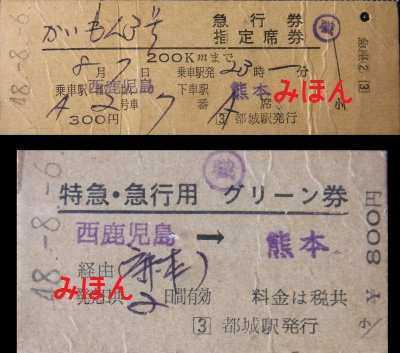 かいもん3号
急行券
指定席券
200Kmまで
8月7日 乗車駅発23時一分
乗車駅 西鹿児島 下車駅 熊本
2号車 7番A席
300円
[3] 都城駅発行
みほん
48-8.6
小
48-8-6
特急・急行用 グリーン券
西鹿児島 → 熊本
経由
みほん
2日間有効 料金は税共
[3] 都城駅発行
800円
小